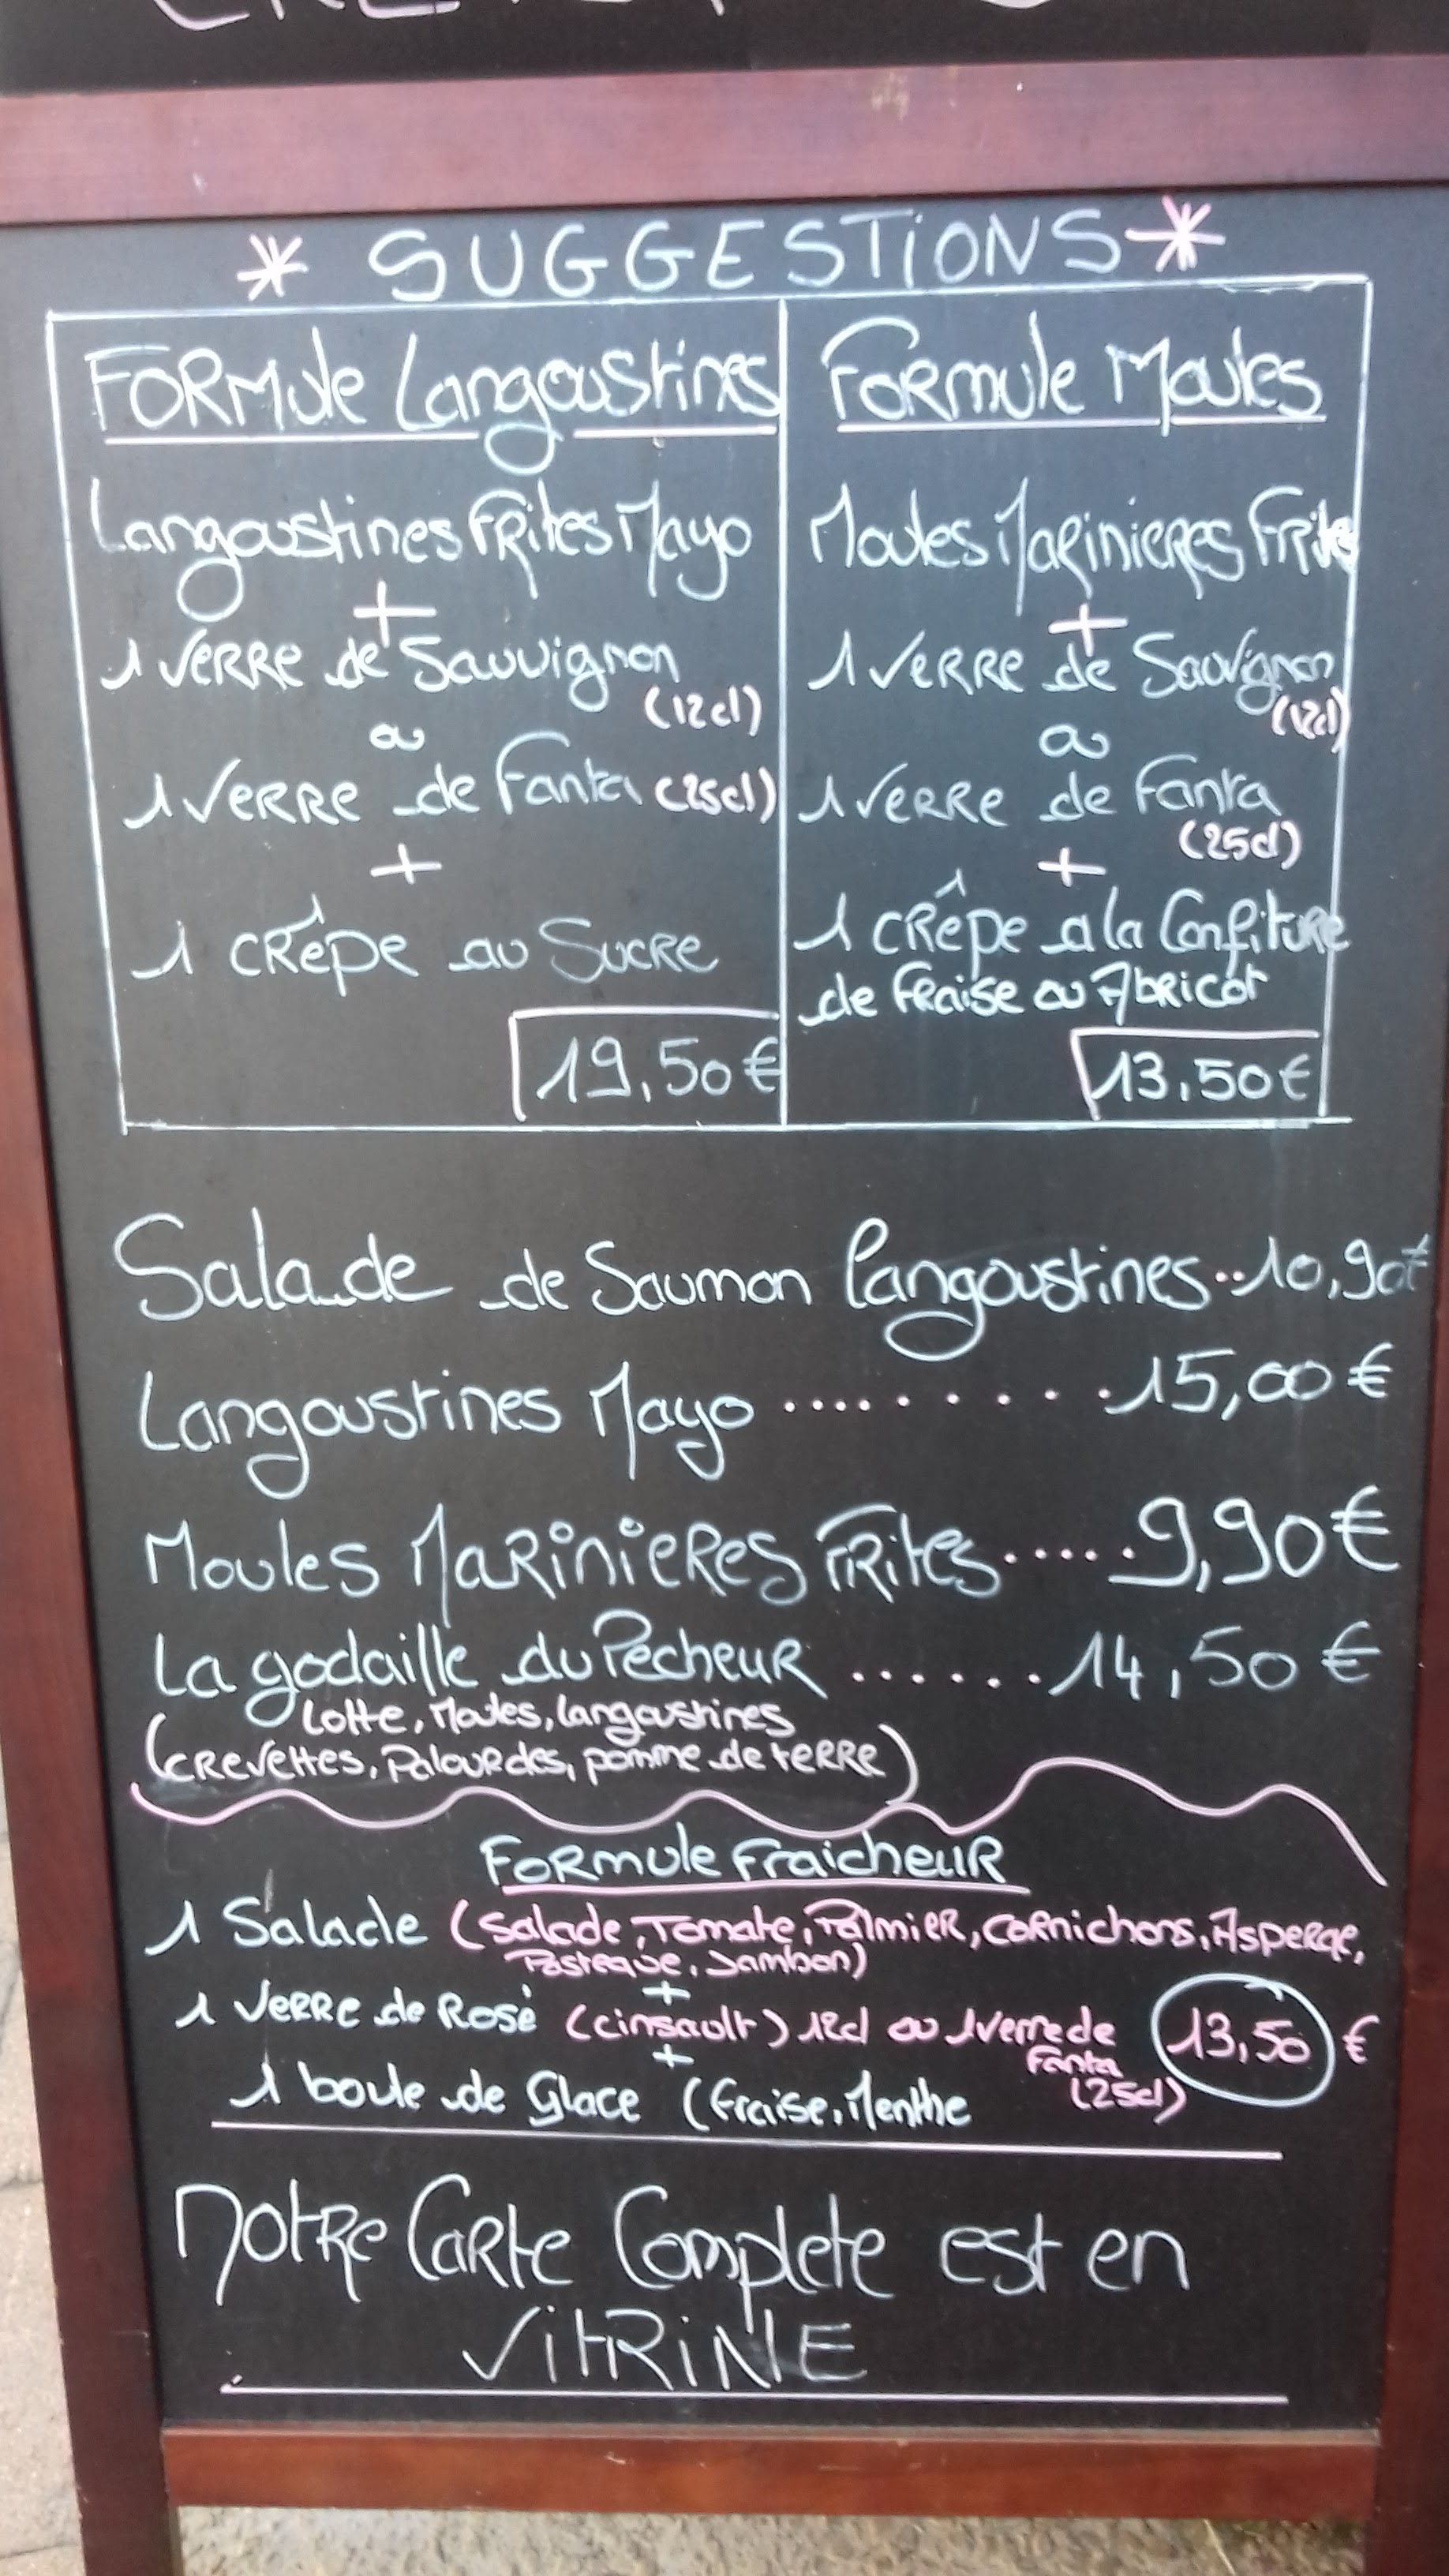 * SUGGESTIONS *
FORMule Langoustines
Langoustines FRites Mayo
+
1 VeRRe de Sauvignon
(12cl)
ou
1 VeRRe de Fanta (25cl)
+
1 CRêpe au SucRe
19,50€
FoRmule Moules
Moules MaRinieRes Frites
+
1 VeRRe de Sauvignon
(12cl)
ou
1 VeRRe de Fanta
(25cl)
+
1 CRêpe a la ConfituRe
de FRaise ou AbRicot
13,50€
Salade de Saumon langoustines..10,90€
Langoustines Mayo ..........15,00€
Moules MaRinieRes FRites.....9,90€
La godaille du PecheuR ......14,50€
(Lotte, Moules, langoustines
CRevettes, PalouRdes, pomme de teRRe)
FoRmule FraicheuR
1 Salade (Salade, Tomate, PalmieR, CoRnichons, AspeRge,
Pasteque, Jambon)
+
1 VeRRe de Rosé (cinsault) 12cl ou 1 verre de
Fanta
(25cl)
13,50 €
+
1 boule de Glace (fraise, Menthe
NotRe CaRte Complete est en
ViTRiNE